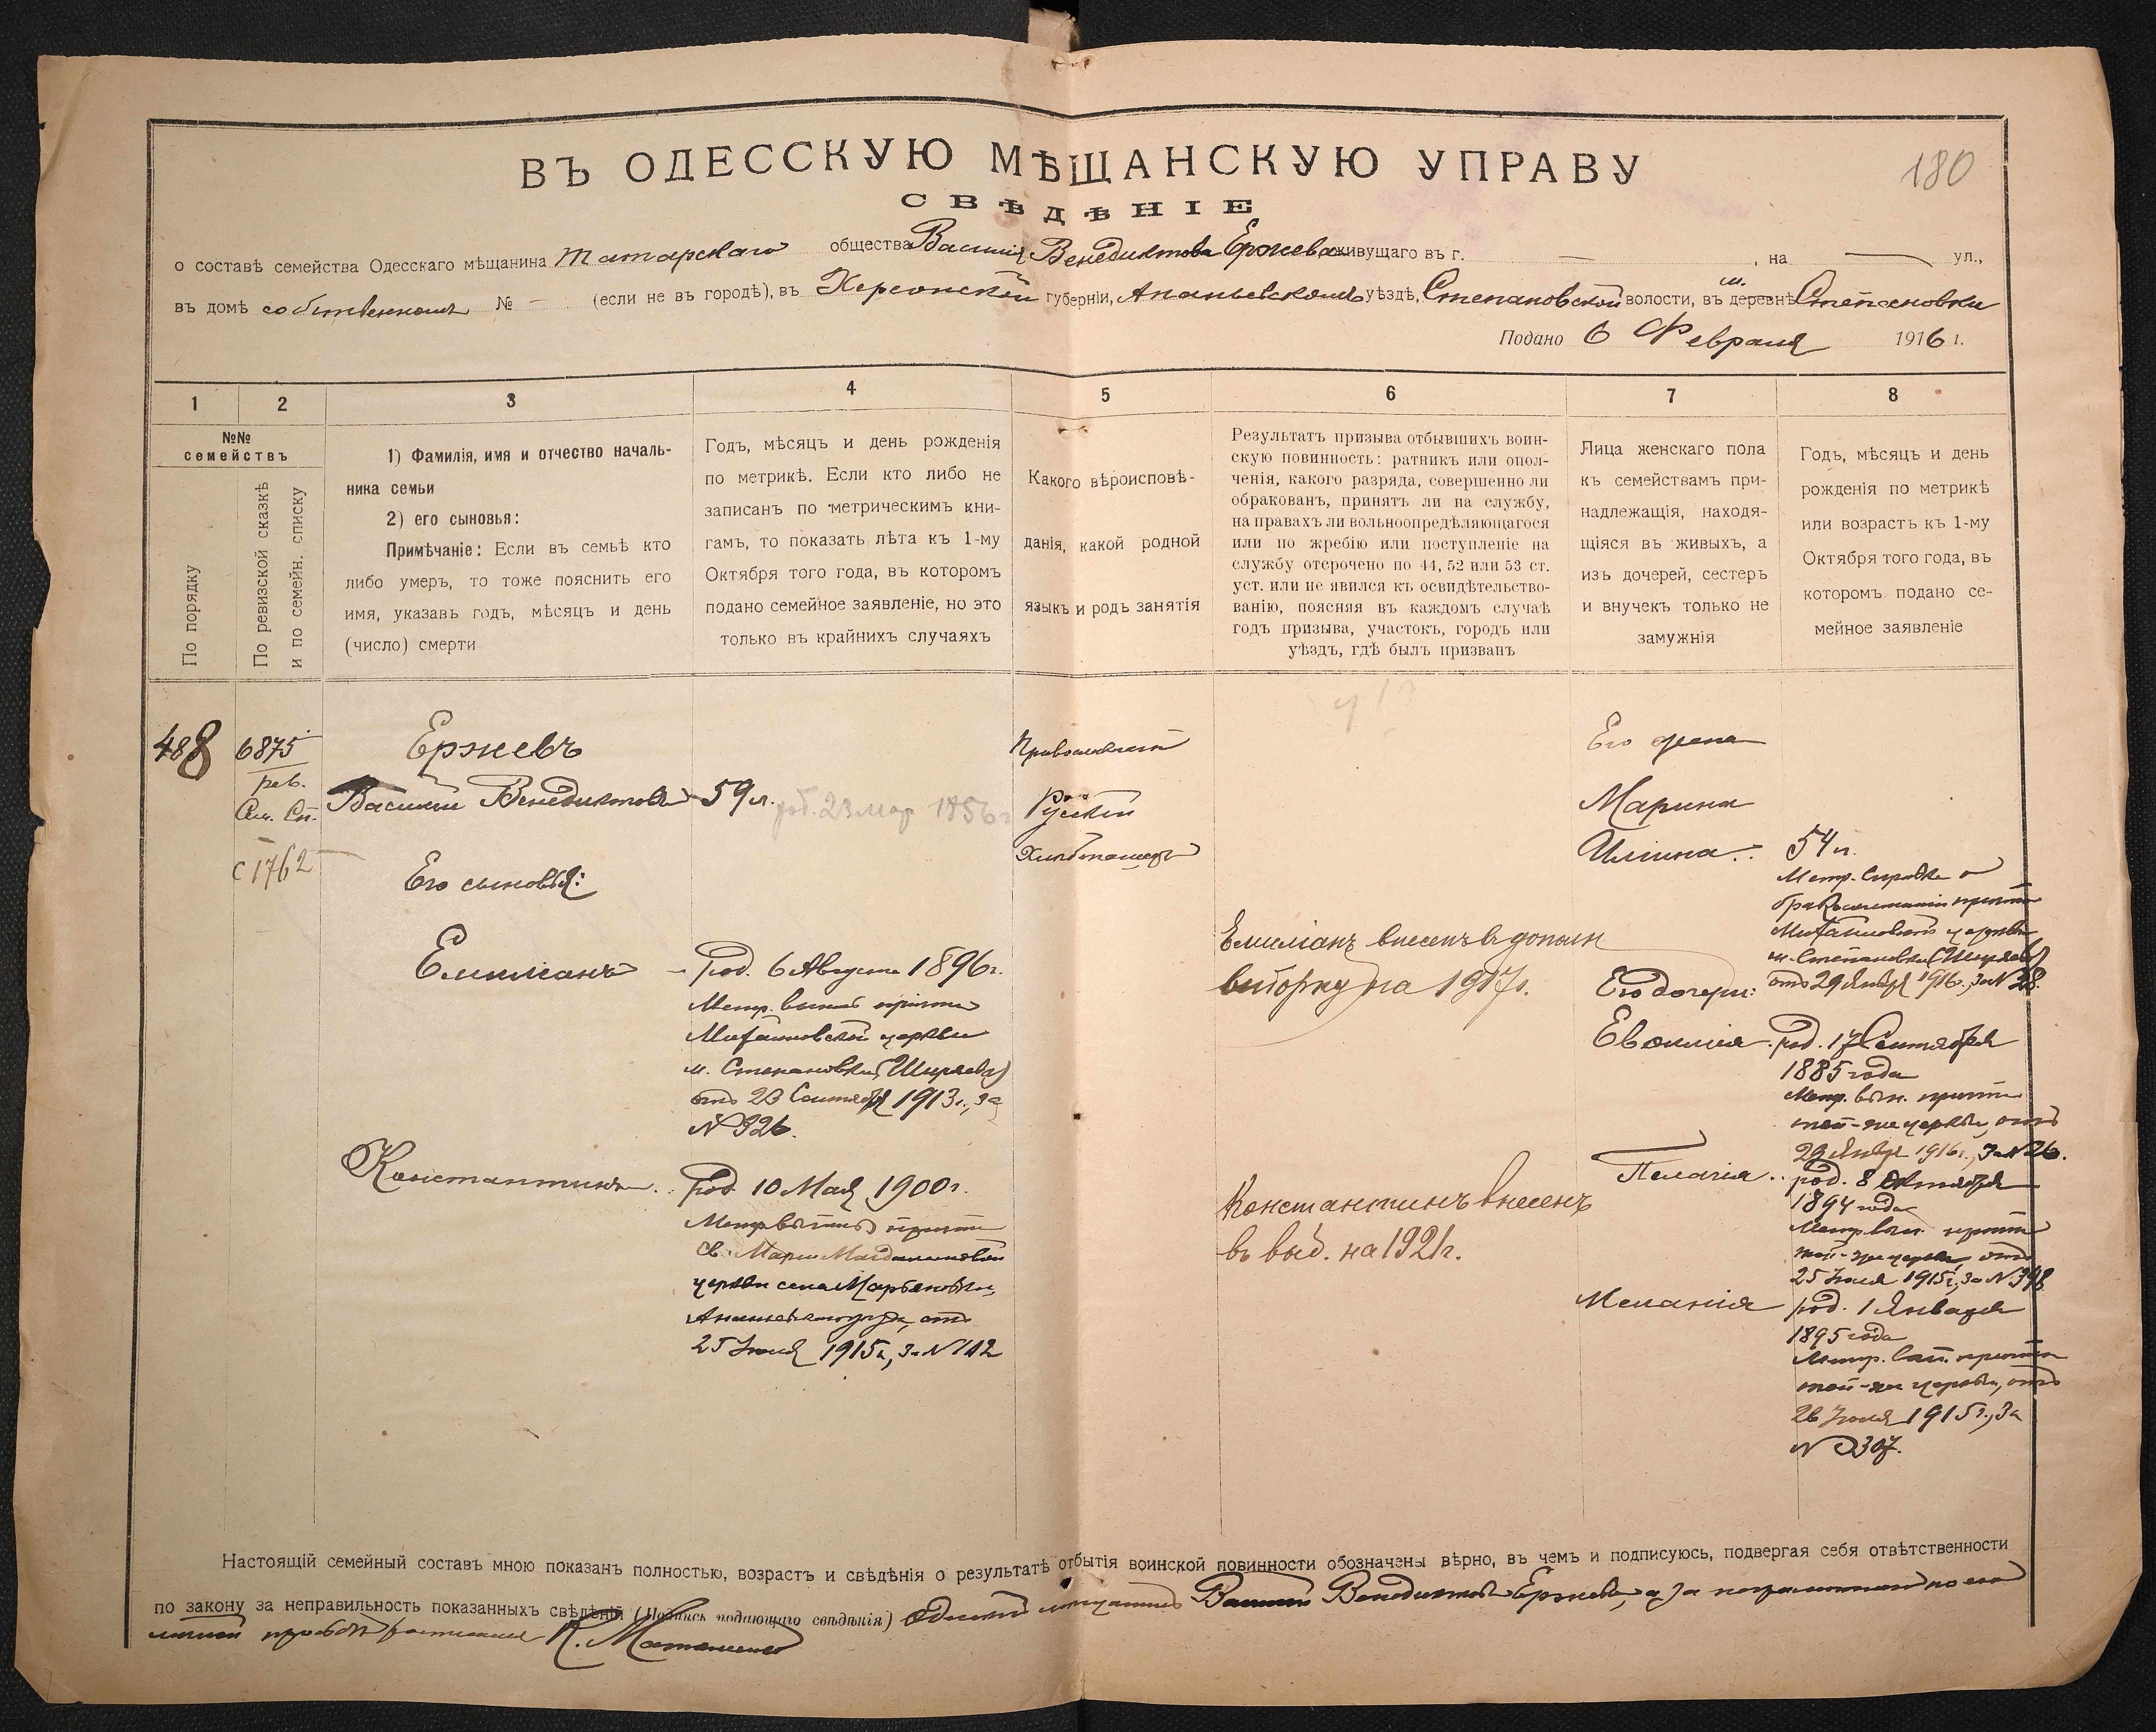 180
ВЪ ОДЕССКУЮ МѢЩАНСКУЮ УПРАВУ
СВѢДѢНІЕ
о составѣ семейства Одесскаго мѣщанина Татарскаго общества Василія Венедиктова Ержева живущаго въ г. — , на — ул.,
въ домѣ собственномъ № — (если не въ городѣ), въ Херсонской губерніи, Ананьевскомъ уѣздѣ, Степановской волости, въ деревнѣ м. Степановки
Подано 6 Февраля 1916 г.
1 2 3 4 5 6 7 8
№№
семействъ
По порядку
По ревизской сказкѣ
и по семейн. списку
1) Фамилія, имя и отчество началь-
ника семьи
2) его сыновья:
Примѣчаніе: Если въ семьѣ кто
либо умеръ, то тоже пояснить его
имя, указавъ годъ, мѣсяцъ и день
(число) смерти
Годъ, мѣсяцъ и день рожденія
по метрикѣ. Если кто либо не
записанъ по метрическимъ кни-
гамъ, то показать лѣта къ 1-му
Октября того года, въ которомъ
подано семейное заявленіе, но это
только въ крайнихъ случаяхъ
Какого вѣроисповѣ-
данія, какой родной
языкъ и родъ занятія
Результатъ призыва отбывшихъ воин-
скую повинность: ратникъ или опол-
ченія, какого разряда, совершенно ли
обракованъ, принятъ ли на службу,
на правахъ ли вольноопредѣляющагося
или по жребію или поступленіе на
службу отсрочено по 44, 52 или 53 ст.
уст. или не явился къ освидѣтельство-
ванію, поясняя въ каждомъ случаѣ
годъ призыва, участокъ, городъ или
уѣздъ, гдѣ былъ призванъ
Лица женскаго пола
къ семействамъ при-
надлежащія, находя-
щіяся въ живыхъ, а
изъ дочерей, сестеръ
и внучекъ только не
замужнія
Годъ, мѣсяцъ и день
рожденія по метрикѣ
или возрастъ къ 1-му
Октября того года, въ
которомъ подано се-
мейное заявленіе
488
6875
рев.
См. Сп.
с 1762
Ержевъ
Василій Венедиктовъ
59 л. род. 23 мар 1856 г
Его сыновья:
Емиліанъ
Род. 6 Августа 1896 г.
Метр. выпись причта
Михайловской церкви
м. Степановки (Ширяева)
отъ 23 Сентября 1913 г., за
№ 326.
Константинъ
Род. 10 Мая 1900 г.
Метр. выпись причта
Св. Маріи Магдалиновской
церкви села Марьяновки,
Ананьев. уѣзда, отъ
25 Іюля 1915 г., за № 142
Православный
Русскій
Хлѣбопашецъ
Емиліанъ внесенъ въ дополн
выборку на 1917 г.
Константинъ внесенъ
въ выб. на 1921 г.
Его жена
Марина
Ильина
54 л.
Метр. справка о
бракосочетаніи причта
Михайловской церкви
м. Степановки (Ширяева)
отъ 29 Января 1916 г., за № 28.
Его дочери:
Евфимія
род. 17 Сентября
1885 года
Метр. вып. причта
той-же церкви, отъ
29 Января 1916 г., за № 26.
Пелагія
род. 8 Октября
1894 года
Метр. вып. причта
той-же церкви, отъ
25 Іюля 1915 г., за № 398
Меланія
род. 1 Января
1895 года
Метр. вып. причта
той-же церкви, отъ
26 Іюля 1915 г., за
№ 307.
Настоящій семейный составъ мною показанъ полностью, возрастъ и свѣдѣнія о результатѣ отбытія воинской повинности обозначены вѣрно, въ чемъ и подписуюсь, подвергая себя отвѣтственности
по закону за неправильность показанныхъ свѣдѣній (Подпись подающаго свѣдѣнія) Одесскій мѣщанинъ Василій Венедиктовъ Ержевъ, а за неграмотнаго по его
личной просьбѣ росписался